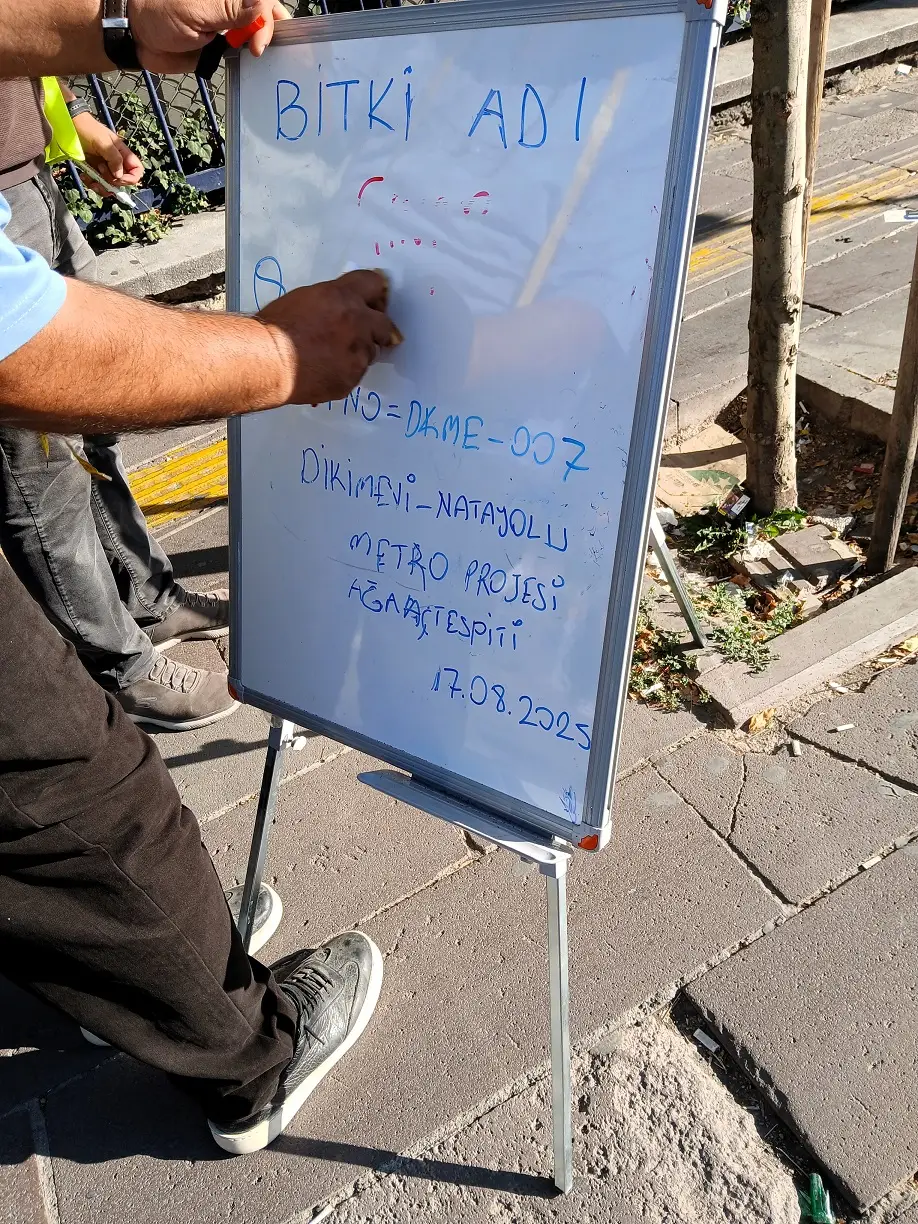 BİTKİ ADI
NO=DKME-007
DİKİMEVİ-NATAYOLU
METRO PROJESİ
AĞAÇTESPİTİ
17.08.2025